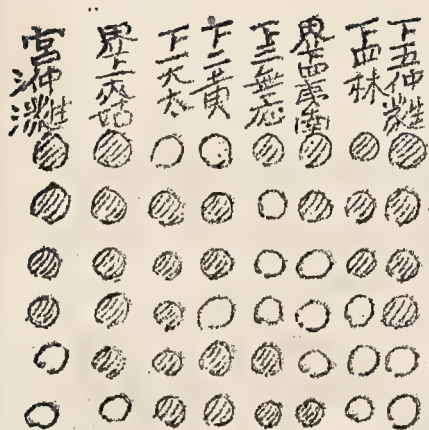 下五仲蕤
下四林
界四夷南
下三無応
下二黄
下一大太
界上夾姑
宮仲蕤